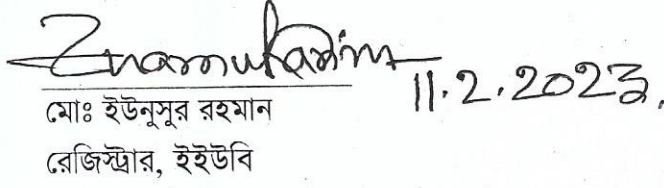 11.2.2023
মোঃ ইউনুসুর রহমান
রেজিস্ট্রার, ইইউবি